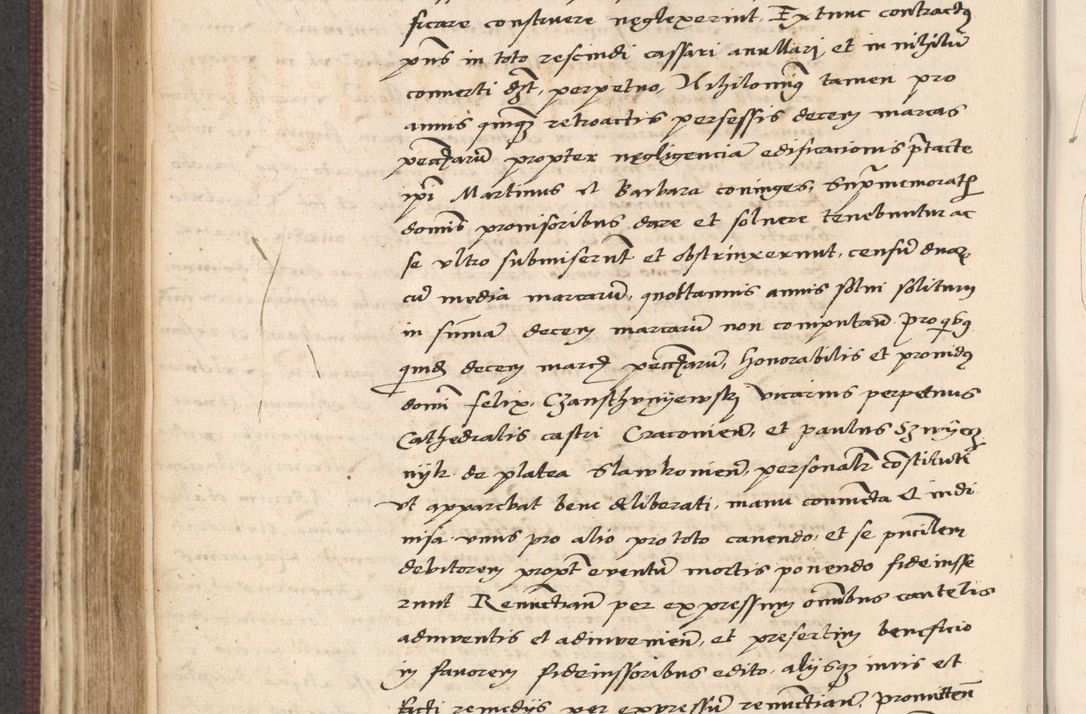 ficare construere neglexerint, Extunc contractus
pns in toto rescindi cassari anullari et in nihilu
conuerti dzt, perpetuo, Nihilominus tamen pro
annis quinqz retroactis persessis decem marcas
pecctaru propter negligencia edificacionis ptacte
ipi Martinus et Barbara coniuges, supmemorat
domis prouisoribus dare et soluere tenebuntur ac
se vltro submiserut et obstrinxerunt, censu duar
cu media marcaru, quottannis annis solui solitum
in suma decem marcaru non computan Pro qbus
quid decem marc pecctaru, honorabilis et prouidus
domi felix, Czansthuyyewsky vicarius perpetuus
Cathedralis castri Cracouien, et paulus
nyk de platea Slawkouien, personalr constituti
vt apparebat bene deliberati, manu coniucta et indi
uisa vnus pro alio pro toto cauendo, et se pncilem
debitorem propt euentu mortis ponendo fideiusse
runt Renuctian per expressum omibus cautelis
adinuentis et adinuenien, et presertim beneficio
in fauorem fideiussoribus edito, alijsqz iuris et
facti remedijs per expressu renuctian, Promitten